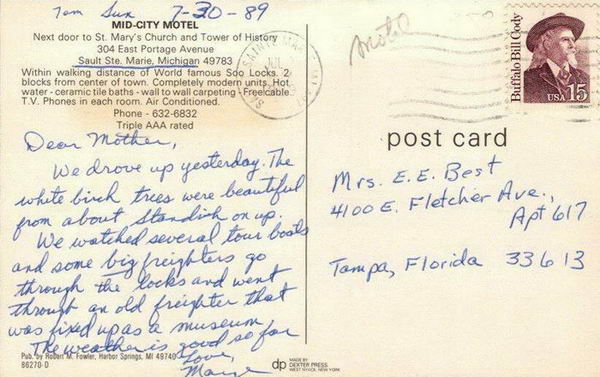 7am Sun 7-30-89
MID-CITY MOTEL
Next door to St. Mary's Church and Tower of History
304 East Portage Avenue
Sault Ste. Marie, Michigan 49783
Within walking distance of World famous Soo Locks. 2
blocks from center of town. Completely modern units. Hot
water - ceramic tile baths - wall to wall carpeting - Free cable
T.V. Phones in each room. Air Conditioned.
Phone - 632-6832
Triple AAA rated
Dear Mother,
We drove up yesterday. The
white birch trees were beautiful
from about Standish on up.
We watched several tour boats
and some big freighters go
through the locks and went
through an old freighter that
was fixed up as a museum.
The weather is good so far
Love,
Marge
Pub. by Robert M. Fowler, Harbor Springs, MI 49740
86270-D
motel
SAINTE MARIE
Buffalo Bill Cody
USA 15
post card
Mrs. E. E. Best
4100 E. Fletcher Ave.,
Apt 617
Tampa, Florida 33613
dp MADE BY
DEXTER PRESS
WEST NYACK, NEW YORK